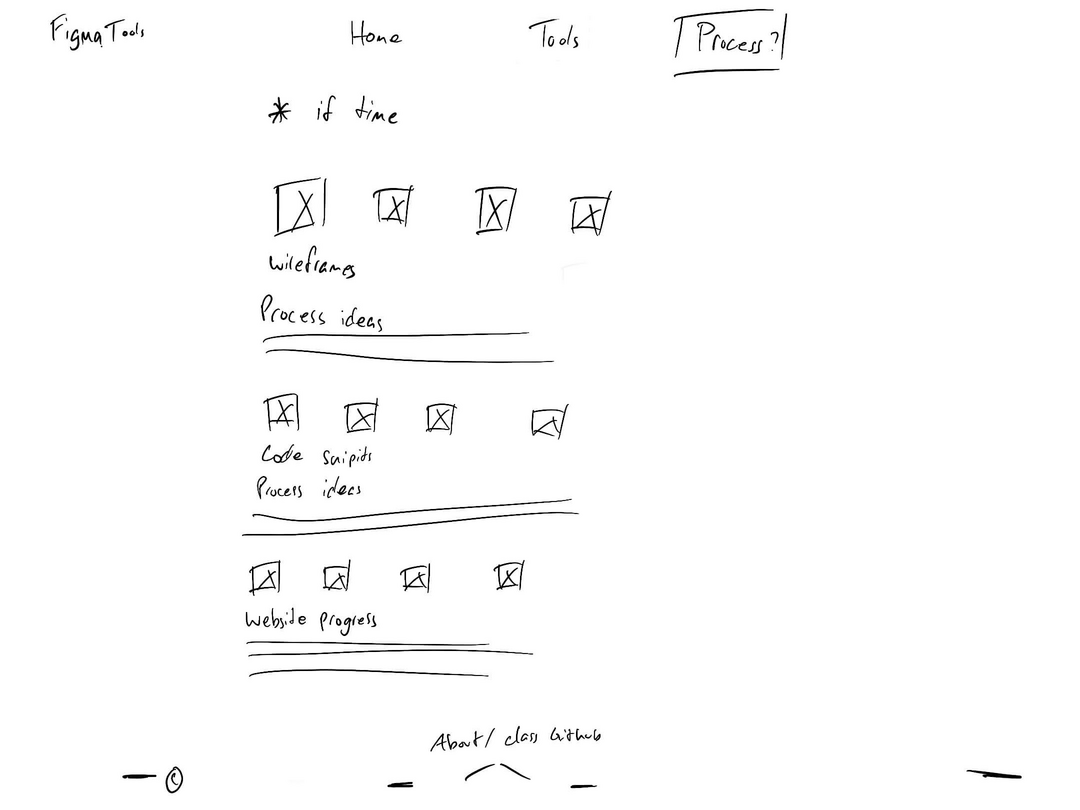 Figma Tools Home Tools Process?
* if time
wireframes
Process ideas
Code snipits
Process ideas
website progress
About/ class Github
©